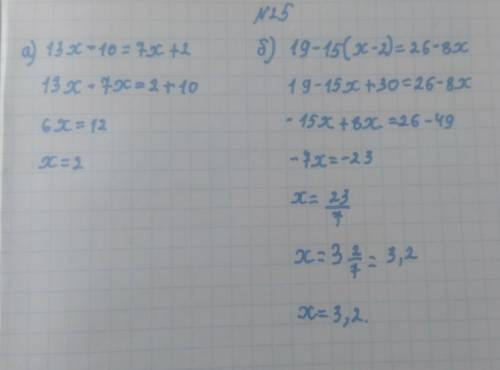 №25
а) 13x-10=7x+2
13x-7x=2+10
6x=12
x=2
б) 19-15(x-2)=26-8x
19-15x+30=26-8x
-15x+8x=26-49
-7x=-23
x=23/7
x=3 2/7=3,2
x=3,2.